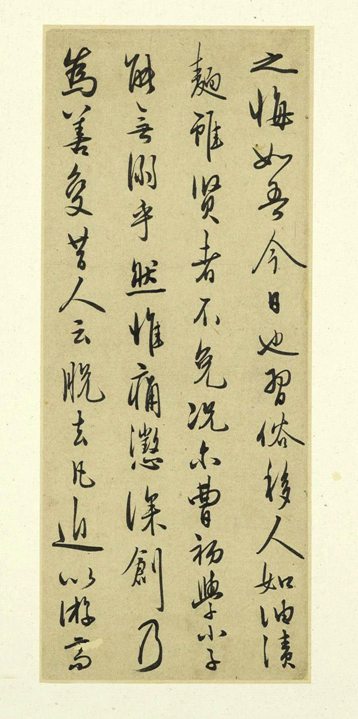 之悔如吾今日也習俗移人如油漬
麵雖賢者不免况尔曹初學小子
能無溺乎然惟痛懲深創乃
為善變昔人云脫去凡近以游高